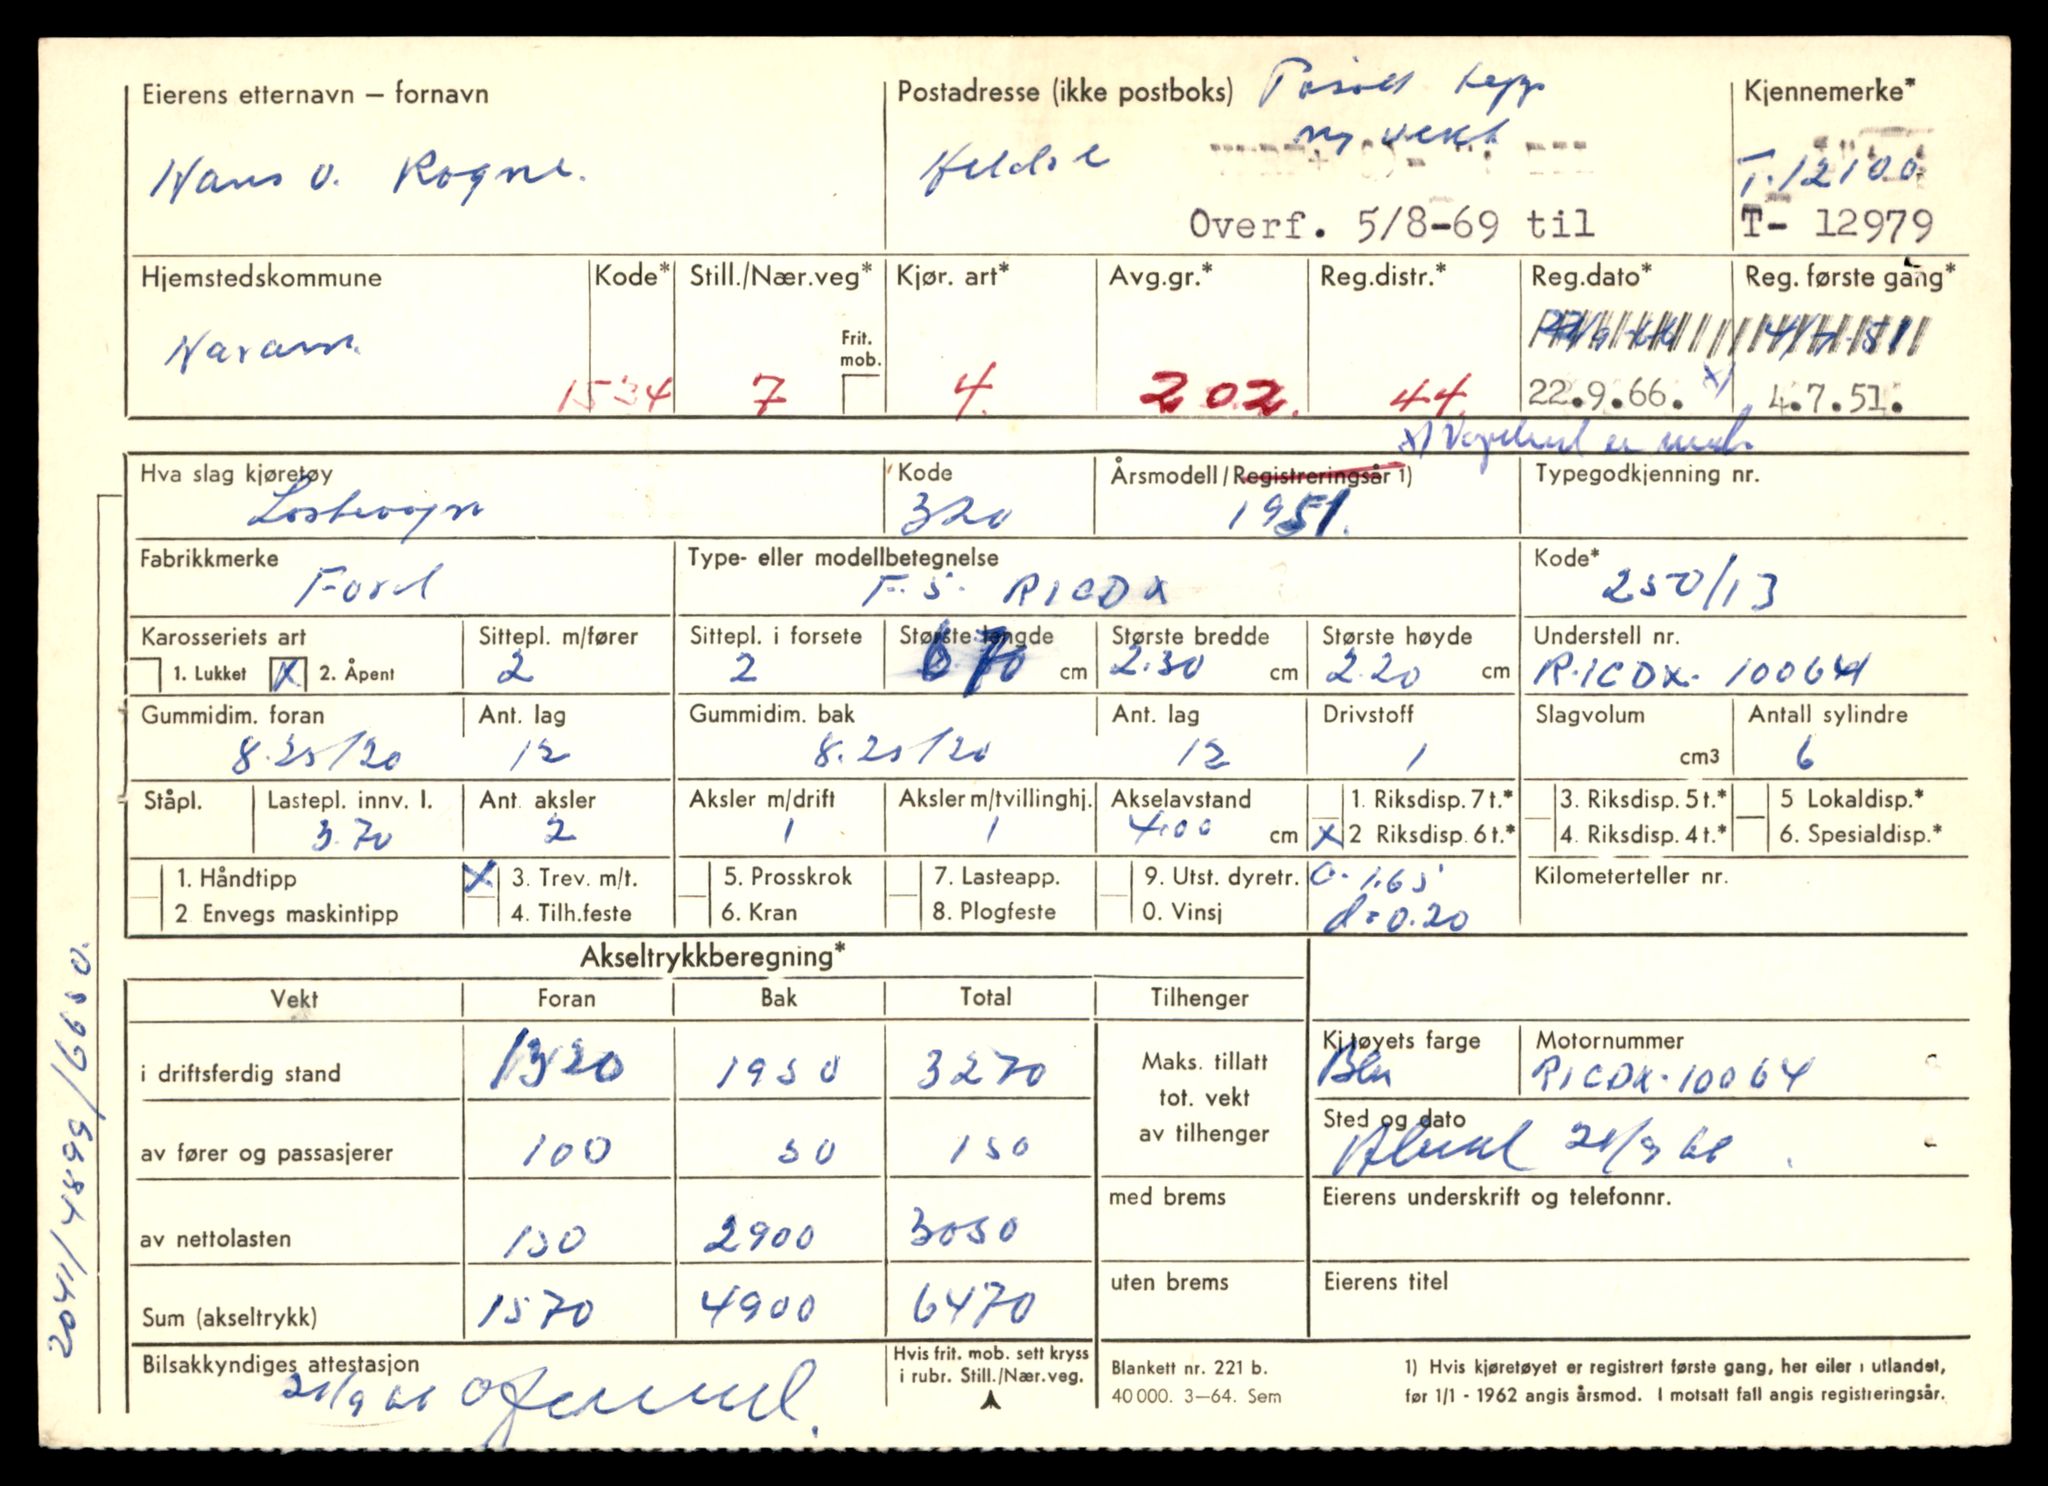 Eierens etternavn – fornavn
Hans O. Rogne.
Postadresse (ikke postboks)
ny vekt
Helds l
Overf. 5/8-69 til
Kjennemerke*
T-12100
T- 12979
Hjemstedskommune
Haram.
Kode*
1534
Still./Nær.veg*
7
Frit. mob.
Kjør. art*
4.
Avg.gr.*
202.
Reg.distr.*
44.
Reg.dato*
22.9.66. x)
Reg. første gang*
4/7-51
4.7.51.
x) Vognkort er
Hva slag kjøretøy
Lastevogn
Kode
320
Årsmodell/Registreringsår 1)
1951.
Typegodkjenning nr.
Fabrikkmerke
Ford
Type- eller modellbetegnelse
F. 5. R1CDX
Kode*
250/13
Karosseriets art
1. Lukket X 2. Åpent
Sittepl. m/fører
2
Sittepl. i forsete
2
Største lengde
6.70 cm
Største bredde
2.30 cm
Største høyde
2.20 cm
Understell nr.
R.1CDX. 10064
Gummidim. foran
8.25/20
Ant. lag
12
Gummidim. bak
8.25/20
Ant. lag
12
Drivstoff
1
Slagvolum
cm3
Antall sylindre
6
Ståpl.
Lastepl. innv. l.
3.70
Ant. aksler
2
Aksler m/drift
1
Aksler m/tvillinghj.
1
Akselavstand
4.00 cm
1. Riksdisp. 7 t.*
X 2 Riksdisp. 6 t.*
3. Riksdisp. 5 t.*
4. Riksdisp. 4 t.*
5 Lokaldisp.*
6. Spesialdisp.*
1. Håndtipp
2 Envegs maskintipp
X 3. Trev. m/t.
4. Tilh.feste
5. Prosskrok
6. Kran
7. Lasteapp.
8. Plogfeste
9. Utst. dyretr.
0. Vinsj
a. 1.65
d=0.20
Kilometerteller nr.
Akseltrykkberegning*
Vekt Foran Bak Total Tilhenger
i driftsferdig stand 1320 1950 3270
av fører og passasjerer 100 50 150
av nettolasten 150 2900 3050
Sum (akseltrykk) 1570 4900 6470
Maks. tillatt
tot. vekt
av tilhenger
med brems
uten brems
Kj.tøyets farge
Blå
Motornummer
R1CDX-10064
Sted og dato
21/9 66
Eierens underskrift og telefonnr.
Eierens titel
Bilsakkyndiges attestasjon
21/9 66
Hvis frit. mob. sett kryss
i rubr. Still./Nær.veg.
Blankett nr. 221 b.
40 000. 3–64. Sem
1) Hvis kjøretøyet er registrert første gang, her eller i utlandet,
før 1/1 - 1962 angis årsmod. I motsatt fall angis registreringsår.
2041/4899/6650.